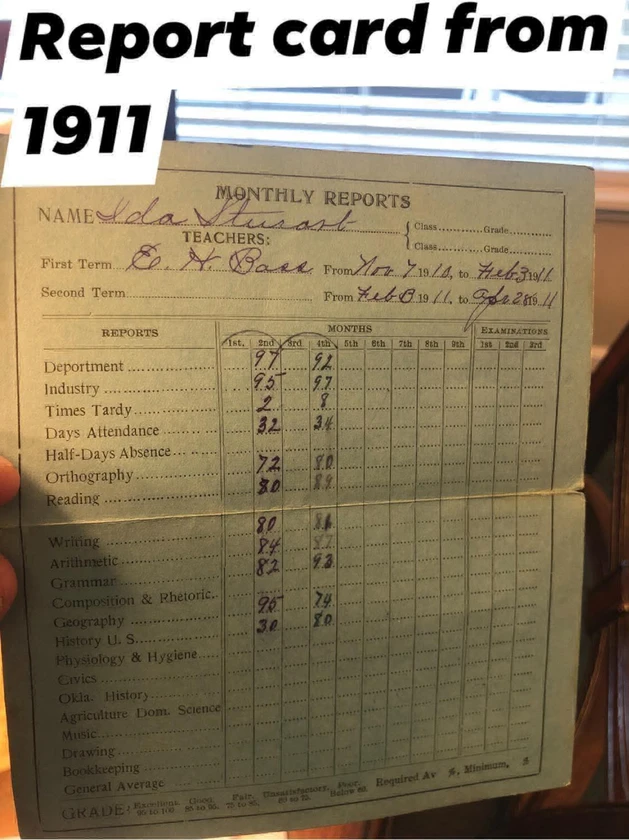 Report card from
1911
MONTHLY REPORTS
NAME Ida Stewart { Class.......... Grade..........
TEACHERS: { Class.......... Grade..........
First Term E. H. Bass From Nov 7 1910, to Feb 3 1911
Second Term.......... From Feb 3 1911, to Apr 28 1911
REPORTS MONTHS EXAMINATIONS
1st. 2nd 3rd 4th 5th 6th 7th 8th 9th 1st 2nd 3rd
Deportment 97 92
Industry 95 97
Times Tardy 2 8
Days Attendance 32 34
Half-Days Absence
Orthography 72 80
Reading 80 89
Writing 80
Arithmetic 84 87
Grammar 82 93
Composition & Rhetoric.
Geography 95 74
History U. S. 30 80
Physiology & Hygiene
Civics
Okla. History
Agriculture Dom. Science
Music
Drawing
Bookkeeping
General Average
GRADE: Excellent, 95 to 100. Good, 85 to 95. Fair, 75 to 85. Unsatisfactory, Poor, Below Required Av %, Minimum, %